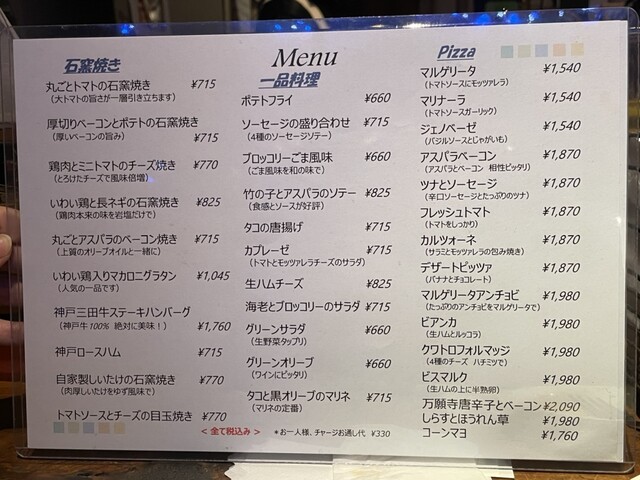 Menu
石窯焼き
丸ごとトマトの石窯焼き ¥715
(大トマトの旨さが一層引き立ちます)
厚切りベーコンとポテトの石窯焼き
(厚いベーコンの旨み) ¥715
鶏肉とミニトマトのチーズ焼き ¥770
(とろけたチーズで風味倍増)
いわい鶏と長ネギの石窯焼き ¥825
(鶏肉本来の味を岩塩だけで)
丸ごとアスパラのベーコン焼き ¥715
(上質のオリーブオイルと一緒に)
いわい鶏入りマカロニグラタン ¥1,045
(人気の一品です)
神戸三田牛ステーキハンバーグ
(神戸牛100% 絶対に美味!) ¥1,760
神戸ロースハム ¥715
自家製しいたけの石窯焼き ¥770
(肉厚しいたけをゆず風味で)
トマトソースとチーズの目玉焼き ¥770
一品料理
ポテトフライ ¥660
ソーセージの盛り合わせ ¥715
(4種のソーセージソテー)
ブロッコリーごま風味 ¥660
(ごま風味を和の味で)
竹の子とアスパラのソテー ¥825
(食感とソースが好評)
タコの唐揚げ ¥715
カプレーゼ ¥715
(トマトとモッツァレラチーズのサラダ)
生ハムチーズ ¥825
海老とブロッコリーのサラダ ¥715
グリーンサラダ ¥660
(生野菜タップリ)
グリーンオリーブ ¥660
(ワインにピッタリ)
タコと黒オリーブのマリネ ¥715
(マリネの定番)
< 全て税込み > *お一人様、チャージお通し代 ¥330
Pizza
マルゲリータ ¥1,540
(トマトソースにモッツアレラ)
マリナーラ ¥1,540
(トマトソースガーリック)
ジェノベーゼ ¥1,540
(バジルソースとじゃがいも)
アスパラベーコン ¥1,870
(アスパラとベーコン 相性ピッタリ)
ツナとソーセージ ¥1,870
(辛口ソーセージとたっぷりのツナ)
フレッシュトマト ¥1,870
(トマトをしっかり)
カルツォーネ ¥1,870
(サラミとモッツァレラの包み焼き)
デザートピッツァ ¥1,870
(バナナとチョコレート)
マルゲリータアンチョビ ¥1,980
(たっぷりのアンチョビをマルゲリータで)
ビアンカ ¥1,980
(生ハムとルッコラ)
クワトロフォルマッジ ¥1,980
(4種のチーズ ハチミツで)
ビスマルク ¥1,980
(生ハムの上に半熟卵)
万願寺唐辛子とベーコン ¥2,090
しらすとほうれん草 ¥1,980
コーンマヨ ¥1,760